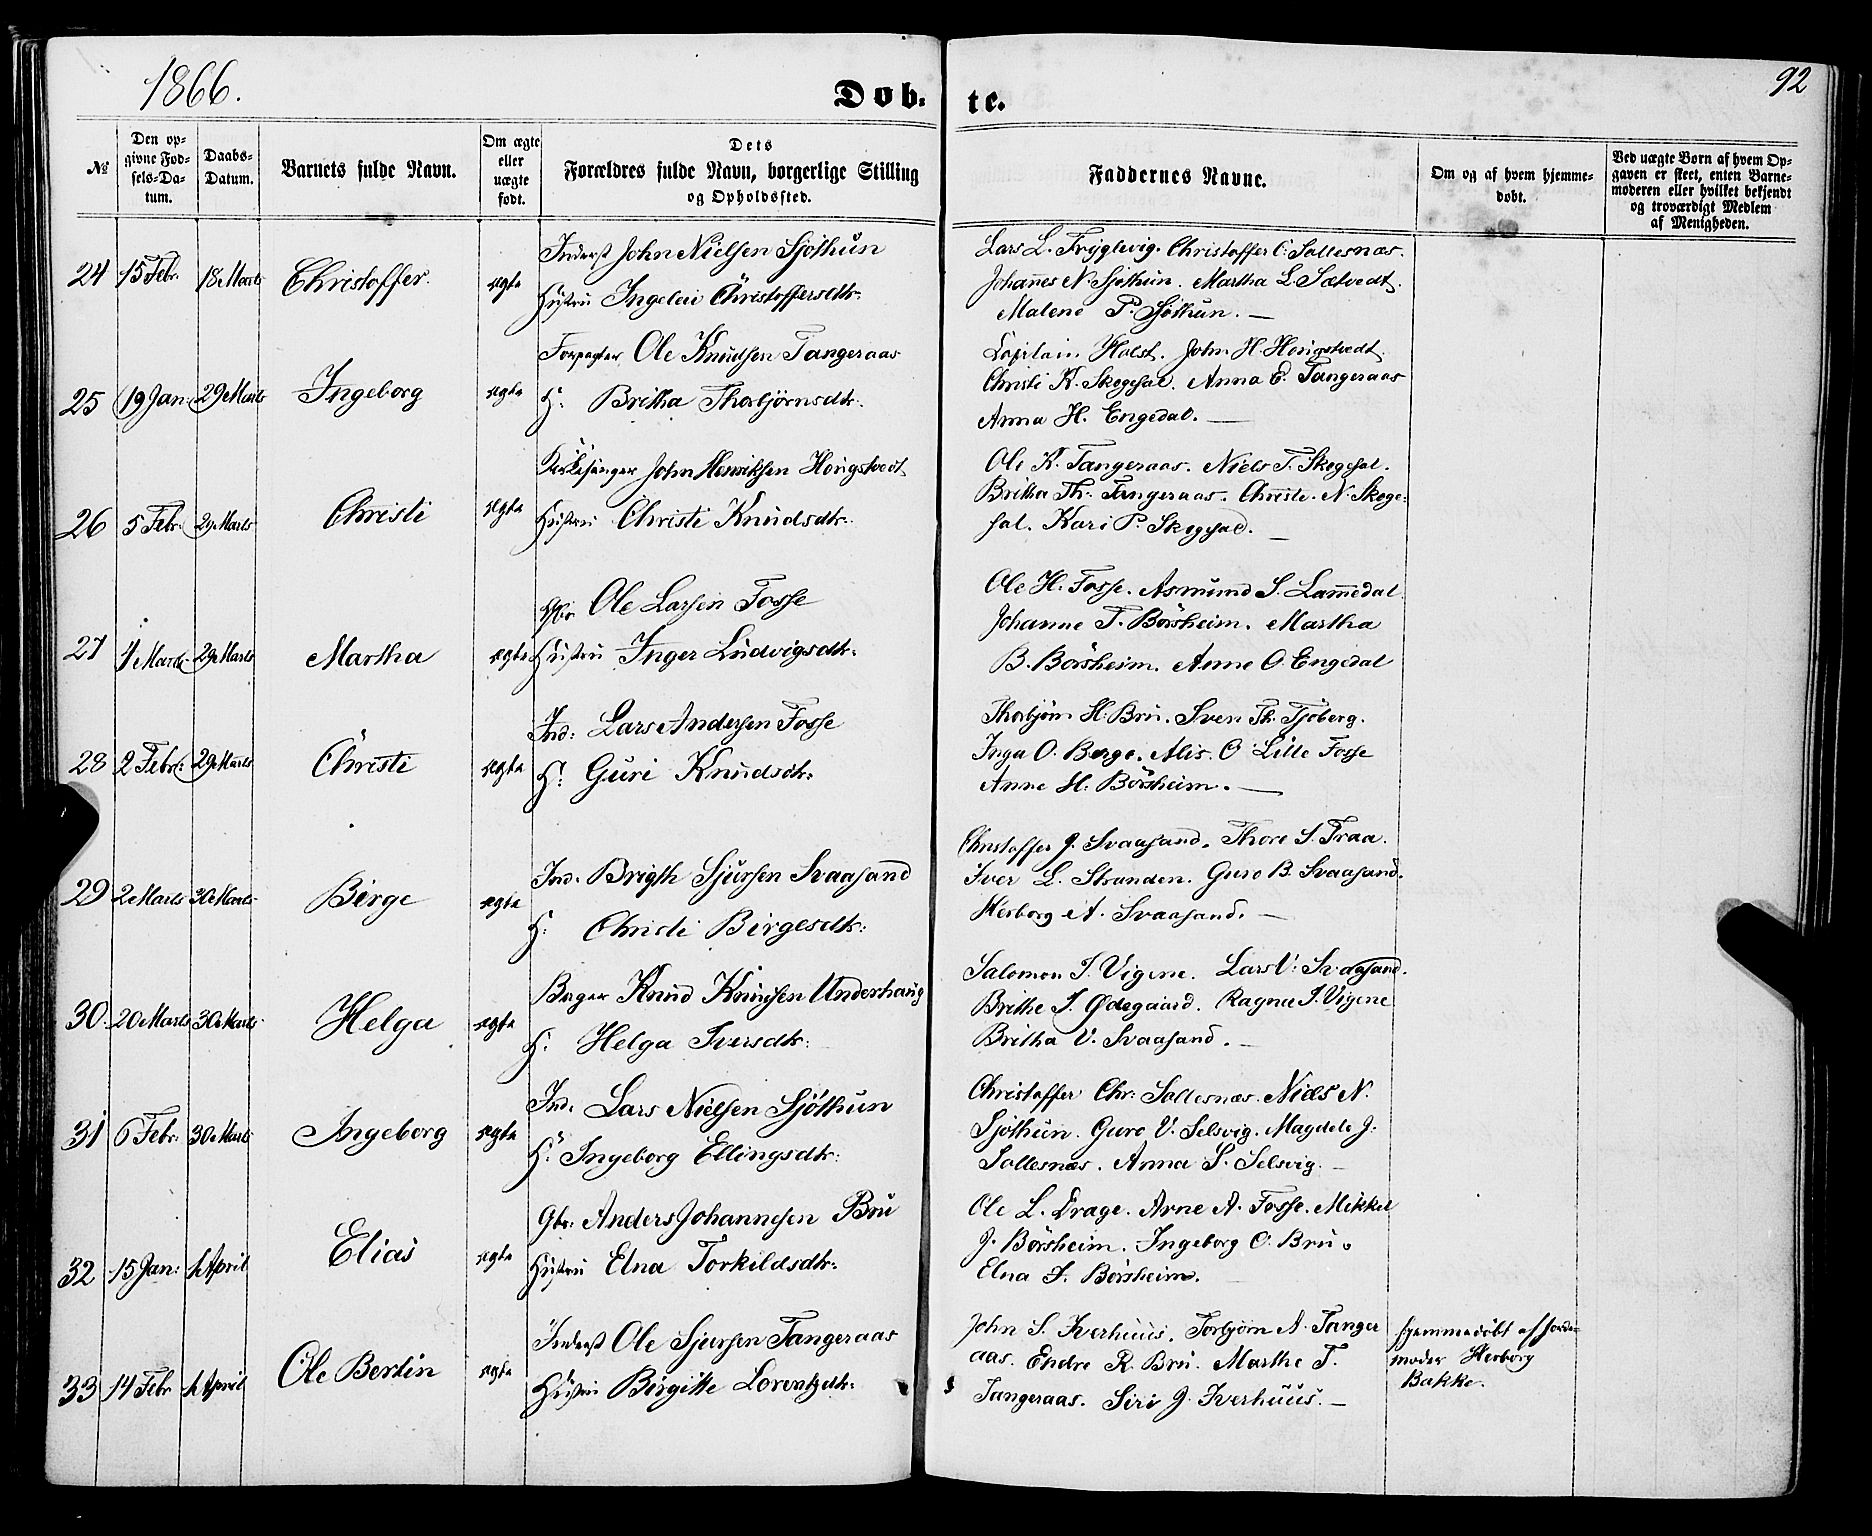 1866.
92
Døb- te.
№
Den op-
givne Fød-
sels-Da-
tum.
Daabs-
Datum.
Barnets fulde Navn.
Om ægte
eller
uægte
født.
Dets
Forældres fulde Navn, borgerlige Stilling
og Opholdssted.
Faddernes Navne.
Om og af hvem hjemme-
døbt.
Ved uægte Børn af hvem Op-
gaven er skeet, enten Barne-
moderen eller hvilket bekjendt
og troværdigt Medlem
af Menigheden.
24 15 Febr. 18 Marts Christoffer. ægte
Inderst John Nielsen Sjøthun
Hustru Ingeleiv Christoffersdtr.
Lars L. Fryglevig. Christoffer C. Saltesnæs.
Johannes N. Sjøthun. Martha L. Sætvedt.
Malene P. Sjøthun. —
25 19 Jan. 29 Marts Ingeborg ægte
Forpagter Ole Knudsen Tangeraas
H. Britha Thorbjørnsdtr.
Capitain Holst. John H. Hougstvedt.
Christi K. Skogesal. Anna E. Tangeraas
Anna H. Engedal. —
26 5 Febr. 29 Marts Christi ægte
Kirkesanger John Henriksen Hougstvedt
Hustru Christi Knudsdtr.
Ole K. Tangeraas. Niels T. Skogesal.
Britha Th. Tangeraas. Christe. N. Skoge-
sal. Kari P. Skogesal. —
27 1 Marts 29 Marts Martha ægte
Gbr. Ole Larsen Fosse
Hustru Inger Ludvigsdtr.
Ole H. Fosse. Asmund S. Lammedal
Johanne T. Børsheim. Martha
B. Børsheim. Anne O. Engedal
28 2 Febr. 29 Marts Christi ægte
Ind: Lars Andersen Fosse
H. Guri Knudsdtr.
Thorbjørn H. Bru. Sven Th. Tjoberg.
Inga O. Berge. Alis. O Lille Fosse
Anne H. Børsheim. —
29 2 Marts 30 Marts Birge ægte
Ind. Brigth Sjursen Svaasand
H. Christi Birgesdtr.
Christoffer J. Svaasand. Thore S. Traa.
Iver L. Stranden. Guro B. Svaasand.
Herborg A. Svaasand. —
30 20 Marts 30 Marts Helga ægte
Bruger Knud Knudsen Underhaug
H. Helga Iversdtr.
Salomon I. Vigene. Lars V. Svaasand.
Brithe I. Ødegaard. Ragna I. Vigene
Britha V. Svaasand. —
31 6 Febr. 30 Marts Ingeborg ægte
Ind. Lars Nielsen Sjøthun
H. Ingeborg Ellingsdtr.
Christoffer Chr. Saltesnæs. Niels N.
Sjøthun. Guro V. Selsvig. Magdele J.
Saltesnæs. Anna S. Selsvig. —
32 15 Jan. 1 April Elias ægte
Gbr. Anders Johannesen Bru
Hustru Elna Torkildsdtr.
Ole L. Drage. Arne A. Fosse. Mikkel
J. Børsheim. Ingeborg O. Bru.
Elna I. Børsheim.
33 14 Febr 1 April Ole Bertin ægte
Inderst Ole Sjursen Tangeraas
Hustru Birgitte Lorentzdtr.
John S. Iverhuus. Torbjørn A. Tanger
aas. Endre R. Bru. Marthe T.
Tangeraas. Siri J. Iverhuus. —
hjemmedøbt af Jorde-
moder Herborg
Bakke.